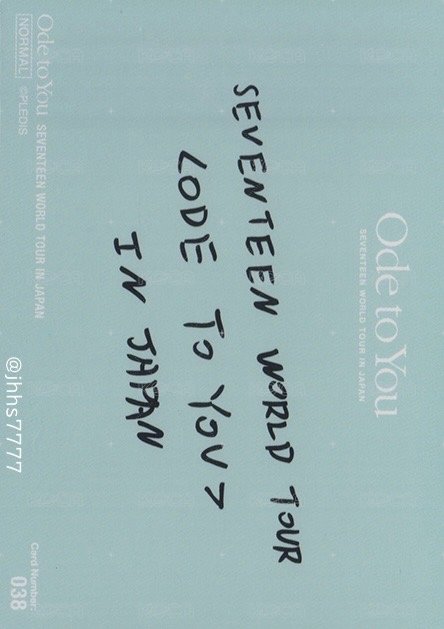 Ode to You
SEVENTEEN WORLD TOUR IN JAPAN
SEVENTEEN WORLD TOUR
<ODE TO YOU>
IN JAPAN
Ode to You SEVENTEEN WORLD TOUR IN JAPAN
NORMAL ©PLEDIS
Card Number:
038
@jhhs7777